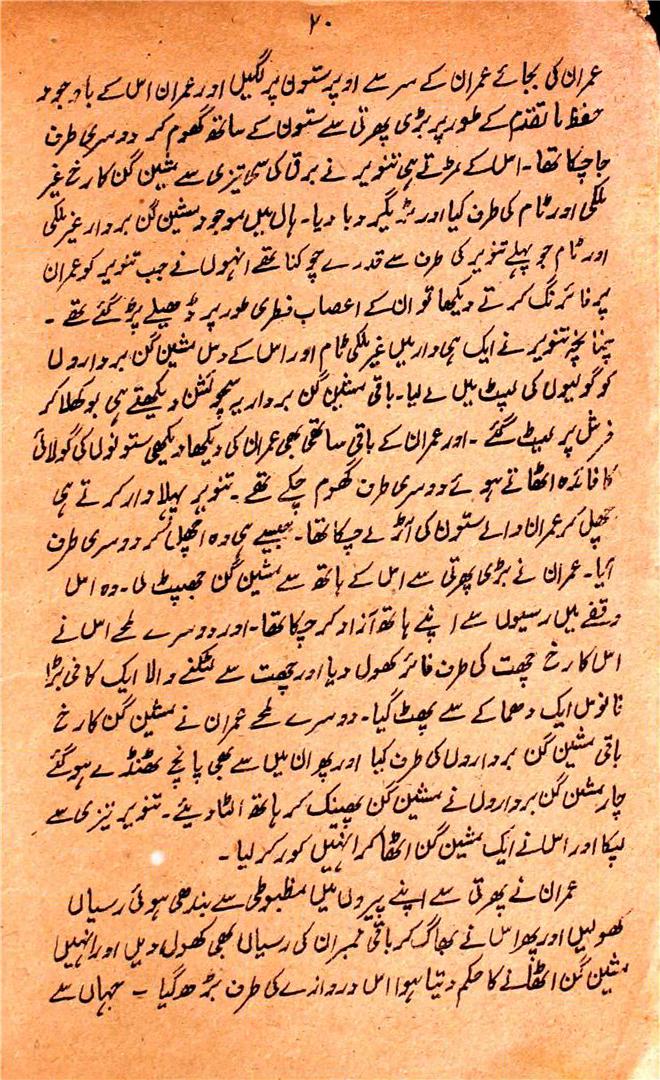 ۲۰
عمران کی بجائے عمران کے سر سے اوپر ستون پر لگیں اور عمران اس کے باوجود
حفظ ماتقدم کے طور پر بڑی پھرتی سے ستون کے ساتھ گھوم کر دوسری طرف
جا چکا تھا۔ اس کے مڑتے ہی تنویر نے برق کی سی تیزی سے مشین گن کا رخ غیر
ملکی اور ٹام کی طرف کیا اور ٹریگر دبا دیا۔ ہال میں موجود مشین گن بردار غیر ملکی
اور ٹام جو پہلے تنویر کی طرف سے قدرے چوکنا تھے انہوں نے جب تنویر کو عمران
پر فائرنگ کرتے دیکھا تو ان کے اعصاب فطری طور پر ڈھیلے پڑ گئے تھے ۔
چنانچہ تنویر نے ایک ہی وار میں غیر ملکی ٹام اور اس کے دس مشین گن برداروں
کو گولیوں کی لپیٹ میں لے لیا۔ باقی مشین گن بردار یہ سچوئشن دیکھتے ہی بوکھلا کر
فرش پر لیٹ گئے ۔ اور عمران کے باقی ساتھی بھی عمران کی دیکھا دیکھی ستونوں کی گولائی
کا فائدہ اٹھاتے ہوئے دوسری طرف گھوم چکے تھے ۔ تنویر پہلا وار کرتے ہی
اچھل کر عمران والے ستون کی آڑ لے چکا تھا۔ جیسے ہی وہ اچھل کر دوسری طرف
آیا۔ عمران نے بڑی پھرتی سے اس کے ہاتھ سے مشین گن جھپٹ لی۔ وہ اس
وقفے میں رسیوں سے اپنے ہاتھ آزاد کر چکا تھا۔ اور دوسرے لمحے اس نے
اس کا رخ چھت کی طرف فائر کھول دیا اور چھت سے لٹکنے والا ایک کافی بڑا
فانوس ایک دھماکے سے پھٹ گیا۔ دوسرے لمحے عمران نے مشین گن کا رخ
باقی مشین گن برداروں کی طرف کیا اور پھر ان میں سے بھی پانچ ٹھنڈے ہو گئے
چار مشین گن برداروں نے مشین گن پھینک کر ہاتھ اٹھا دیئے ۔ تنویر تیزی سے
لپکا اور اس نے ایک مشین گن اٹھا کر انہیں کور کر لیا ۔
عمران نے پھرتی سے اپنے پیروں میں مظبوطی سے بندھی ہوئی رسیاں
کھولیں اور پھر اس نے بھاگ کر باقی ممبران کی رسیاں بھی کھول دیں اور انہیں
مشین گن اٹھانے کا حکم دیتا ہوا اس دروازے کی طرف بڑھ گیا ۔ جہاں سے